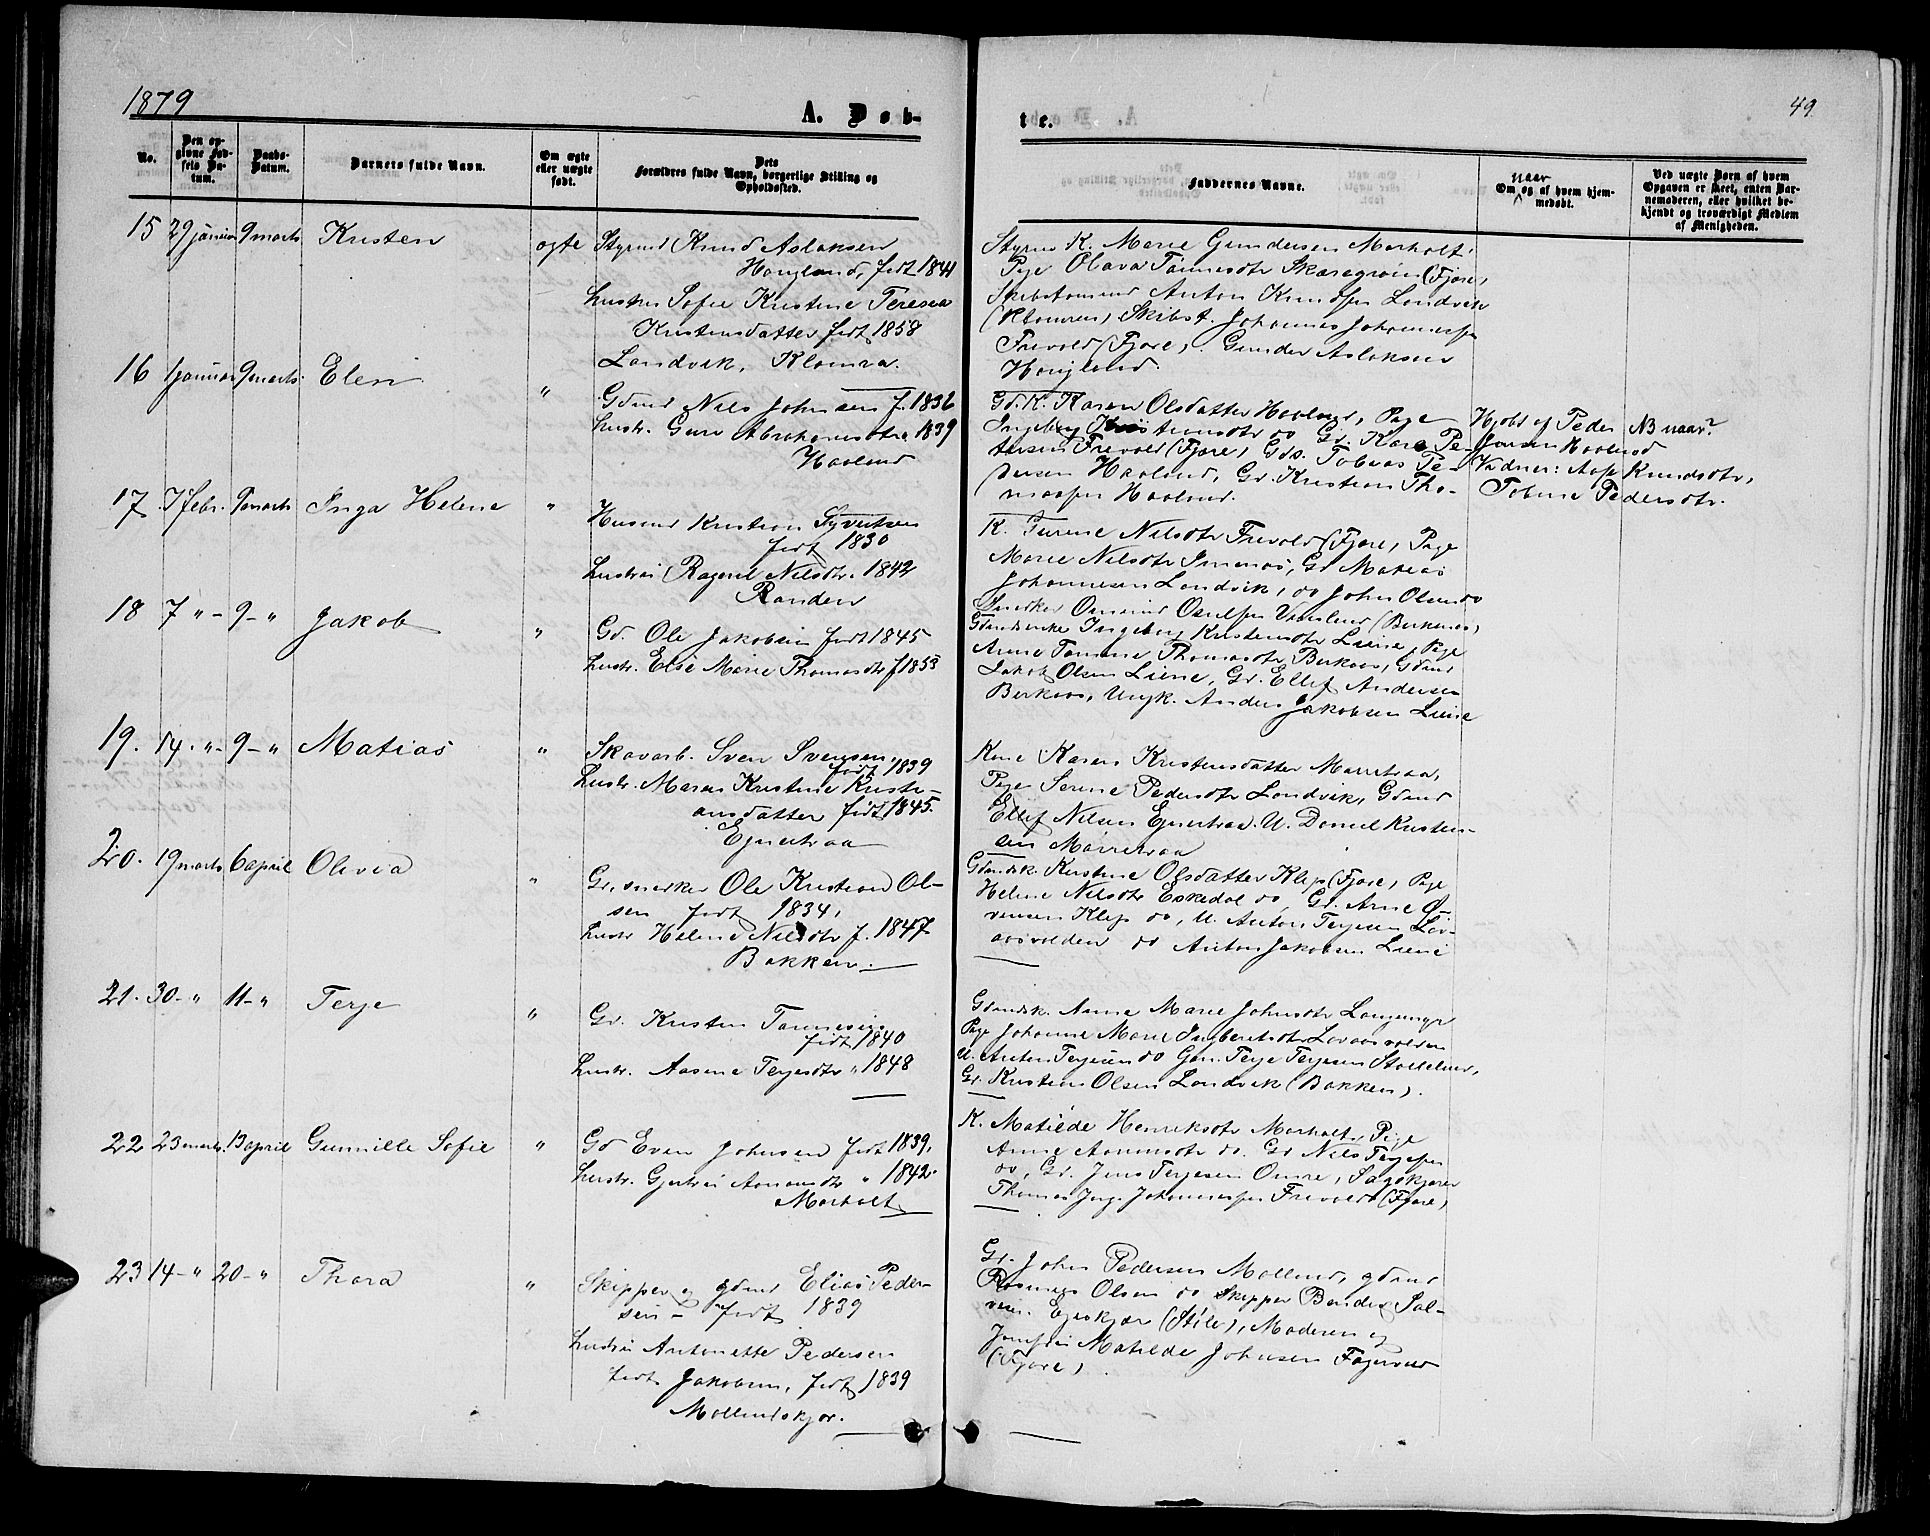 1879
49
A. Døb-
te.
No.
Den op-
givne Fød-
sels Da-
tum.
Daabs-
Datum.
Barnets fulde Navn.
Om ægte
eller uægte
født.
Dets
Forældres fulde Navn, borgerlige Stilling og
Opholdssted.
Faddernes Navne.
naar
Om og af hvem hjem-
medøbt.
Ved uægte Børn af hvem
Opgaven er skeet, enten Bar-
nemoderen, eller hvilket be-
kjendt og troværdigt Medlem
af Menigheden.
15 29 januar 9 marts Kristen ægte Styrmd Knud Aslaksen
Haugland, født 1841
hustru Sofie Kristine Teresea
Kristensdatter født 1858
Landvik, Klomra.
Styrms K. Marie Gundersen Morholt,
Pige Olava Tønnesdtr Skaregrøm (Fjære,
Skibstømmd Anton Knudsen Landvik
(Klomren) Skibst. Johannes Johannessen
Frevold (Fjære), Gunder Aslaksen
Haugland.
16 1 januar 9 marts Elen " Gdmd Nils Johnsen f. 1836
hustr. Guro Abrahamsdtr 1839
Haaland
Gd. K. Karen Olsdatter Haaland, Pige
Ingeborg Kristensdtr do Gr. Kare Pe-
tersen Frevold (Fjære, Gds. Tobias Pe-
dersen Haaland, Gr. Kristian Tho-
massen Haaland.
Hjdbt af Peder
Jensen Haaland
Vidner: Aase Knudsdtr,
Tobine Pedersdtr.
NB naar?
17 7 febr. 9 marts Inga Helene " Husmd Kristian Syvertsen
født 1830
hustru Ragnil Nilsdtr. 1842
Randen
K. Gurine Nilsdtr Frevold (Fjære, Pige
Marie Nilsdtr Imenes, Gd Matias
Johannesen Landvik, do John Olsen do
Snedker Omund Osulfsen Væsland (Birkenes)
18 7 " - 9 - " Jakob " Gd. Ole Jakobsen født 1845
hustr. Else Marie Thomasdtr f 1853
Gdmdsenke Ingeborg Kristensdtr Liene, Pige
Anne Tomine Thomasdtr Birkaas, Gdmd
Jakob Olsen Liene, Gr. Ellef Andersen
Birkaas, Ungk. Anders Jakobsen Liene
19. 14. " - 9 - " Matias " Skovarb. Sven Svensen,
født 1839
hustr. Maren Kristine Kristi-
ansdatter født 1845.
Egnetraa
Kone Karen Kristensdatter Marretraa,
Pige Serine Pedersdtr Landvik, Gdmd
Ellef Nilsen Egnetraa. U. Daniel Kristen-
sen Marretraa
20. 19 marts 6 april Olivia " Gr, snedker Ole Kristian Ol-
sen født 1834,
hustr Helene Nilsdtr f. 1847
Bakken.
Gdmdsk. Kristine Olsdatter Klep (Fjære, Pige
Helene Nilsdtr Eskedal do, Gr. Arne E-
vensen Klep do, U. Anton Terjesen Lov-
aasvolden do Anton Jakobsen Liene
21. 30 - " 11 - " Terje " Gr. Kristen Tønnesen
født 1840
hustr. Aasene Terjesdtr " 1848
Gdmdsk. Anne Marie Johnsdtr Langemyr
Pige Johanne Marie Ingbretsdtr Lovaasvolden
U. Anton Terjesen do Gdm. Terje Terjesen
Gr. Kristian Olsen Landvik (Bakken).
22 23 marts. 13 april Gunnille Sofie " Gd Even Johnsen født 1839,
hustr. Gjertrui Aanundsdtr " 1842
Morholt
K. Matilde Henriksdtr Morholt, Pige
Anne Aamundsdtr do. Gr Nils Terjesen
do, Gr. Jens Terjesen Omre, Sagskjærer
Thomas Jørg. Johannessen Frevold (Fjære)
23 14 - " 20 - " Thora " Skipper og gdmd Elias Peder-
sen - født 1839
hustru Antonette Pedersen
født Jakobsen, født 1839
Mollandskjær.
Gr. John Pedersen Molland, gdmd
Rasmus Olsen do Skipper Bendix Sal-
vesen Egeskjær (Stile), Moderen og
Jomfru Matilde Johnsen Fagervir
(Fjære).